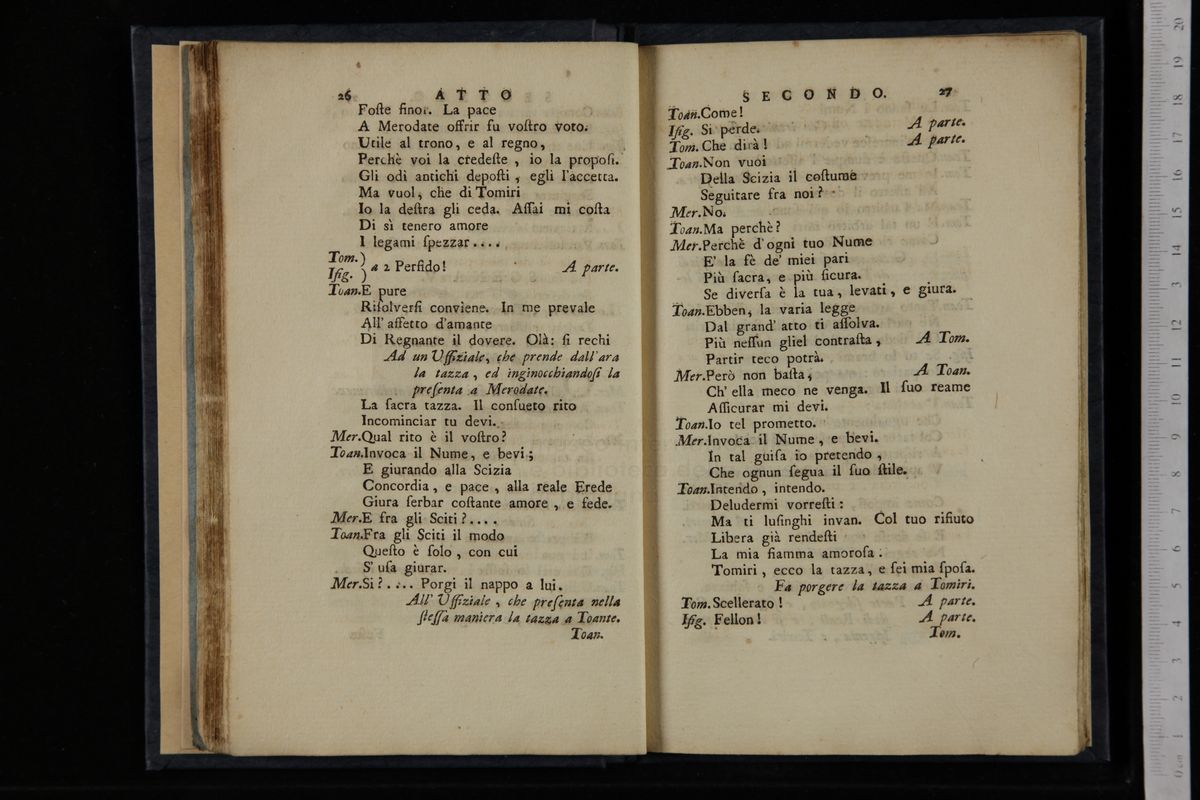 26 ATTO
Foſte finor. La pace
A Merodate offrir fu voſtro voto.
Utile al trono, e al regno,
Perchè voi la credeſte , io la propoſi.
Gli odi antichi depoſti , egli l'accetta.
Ma vuol, che di Tomiri
Io la deſtra gli ceda. Aſſai mi coſta
Di sì tenero amore
I legami ſpezzar....
Tom. )
Ifig. ) a 2 Perfido! A parte.
Toan.E pure
Riſolverſi conviene. In me prevale
All' affetto d'amante
Di Regnante il dovere. Olà: ſi rechi
Ad un Uffiziale, che prende dall'ara
la tazza , ed inginocchiandoſi la
preſenta a Merodate.
La ſacra tazza. Il conſueto rito
Incominciar tu devi.
Mer.Qual rito è il voſtro?
Toan.Invoca il Nume, e bevi;
E giurando alla Scizia
Concordia , e pace , alla reale Erede
Giura ſerbar coſtante amore , e fede.
Mer.E fra gli Sciti?....
Toan.Fra gli Sciti il modo
Queſto è ſolo , con cui
S' uſa giurar.
Mer.Si?.... Porgi il nappo a lui.
All' Uffiziale , che preſenta nella
ſteſſa maniera la tazza a Toante.
Toan.
SECONDO. 27
Toan.Come!
Ifig. Si perde. A parte.
Tom. Che dirà! A parte.
Toan.Non vuoi
Della Scizia il coſtume
Seguitare fra noi?
Mer.No.
Toan.Ma perchè?
Mer.Perchè d'ogni tuo Nume
E' la fè de' miei pari
Più ſacra, e più ſicura.
Se diverſa è la tua, levati, e giura.
Toan.Ebben, la varia legge
Dal grand' atto ti aſſolva.
Più neſſun gliel contraſta, A Tom.
Partir teco potrà.
Mer.Però non baſta, A Toan.
Ch' ella meco ne venga. Il ſuo reame
Aſſicurar mi devi.
Toan.Io tel prometto.
Mer.Invoca il Nume , e bevi.
In tal guiſa io pretendo ,
Che ognun ſegua il ſuo ſtile.
Toan.Intendo, intendo.
Deludermi vorreſti:
Ma ti luſinghi invan. Col tuo rifiuto
Libera già rendeſti
La mia fiamma amoroſa.
Tomiri , ecco la tazza, e ſei mia ſpoſa.
Fa porgere la tazza a Tomiri.
Tom. Scellerato! A parte.
Ifig. Fellon! A parte.
Tom.